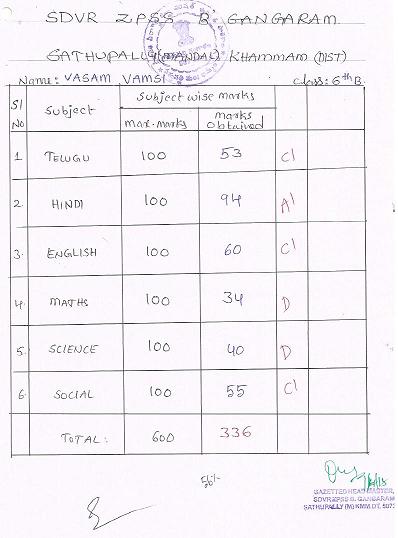 SDVR ZPSS B GANGARAM
SATHUPALLY (MANDAL) KHAMMAM (DIST)
Name: VASAM VAMSI Class: 6th B.
Sl No Subject Subject wise marks
max. marks marks obtained
1 TELUGU 100 53 C1
2. HINDI 100 94 A1
3. ENGLISH 100 60 C1
4. MATHS 100 34 D
5. SCIENCE 100 40 D
6 SOCIAL 100 55 C1
TOTAL: 600 336
56%
GAZETTED HEAD MASTER,
SDVRZPSS B. GANGARAM
SATHUPALLY (M) KMM.DT, 5073